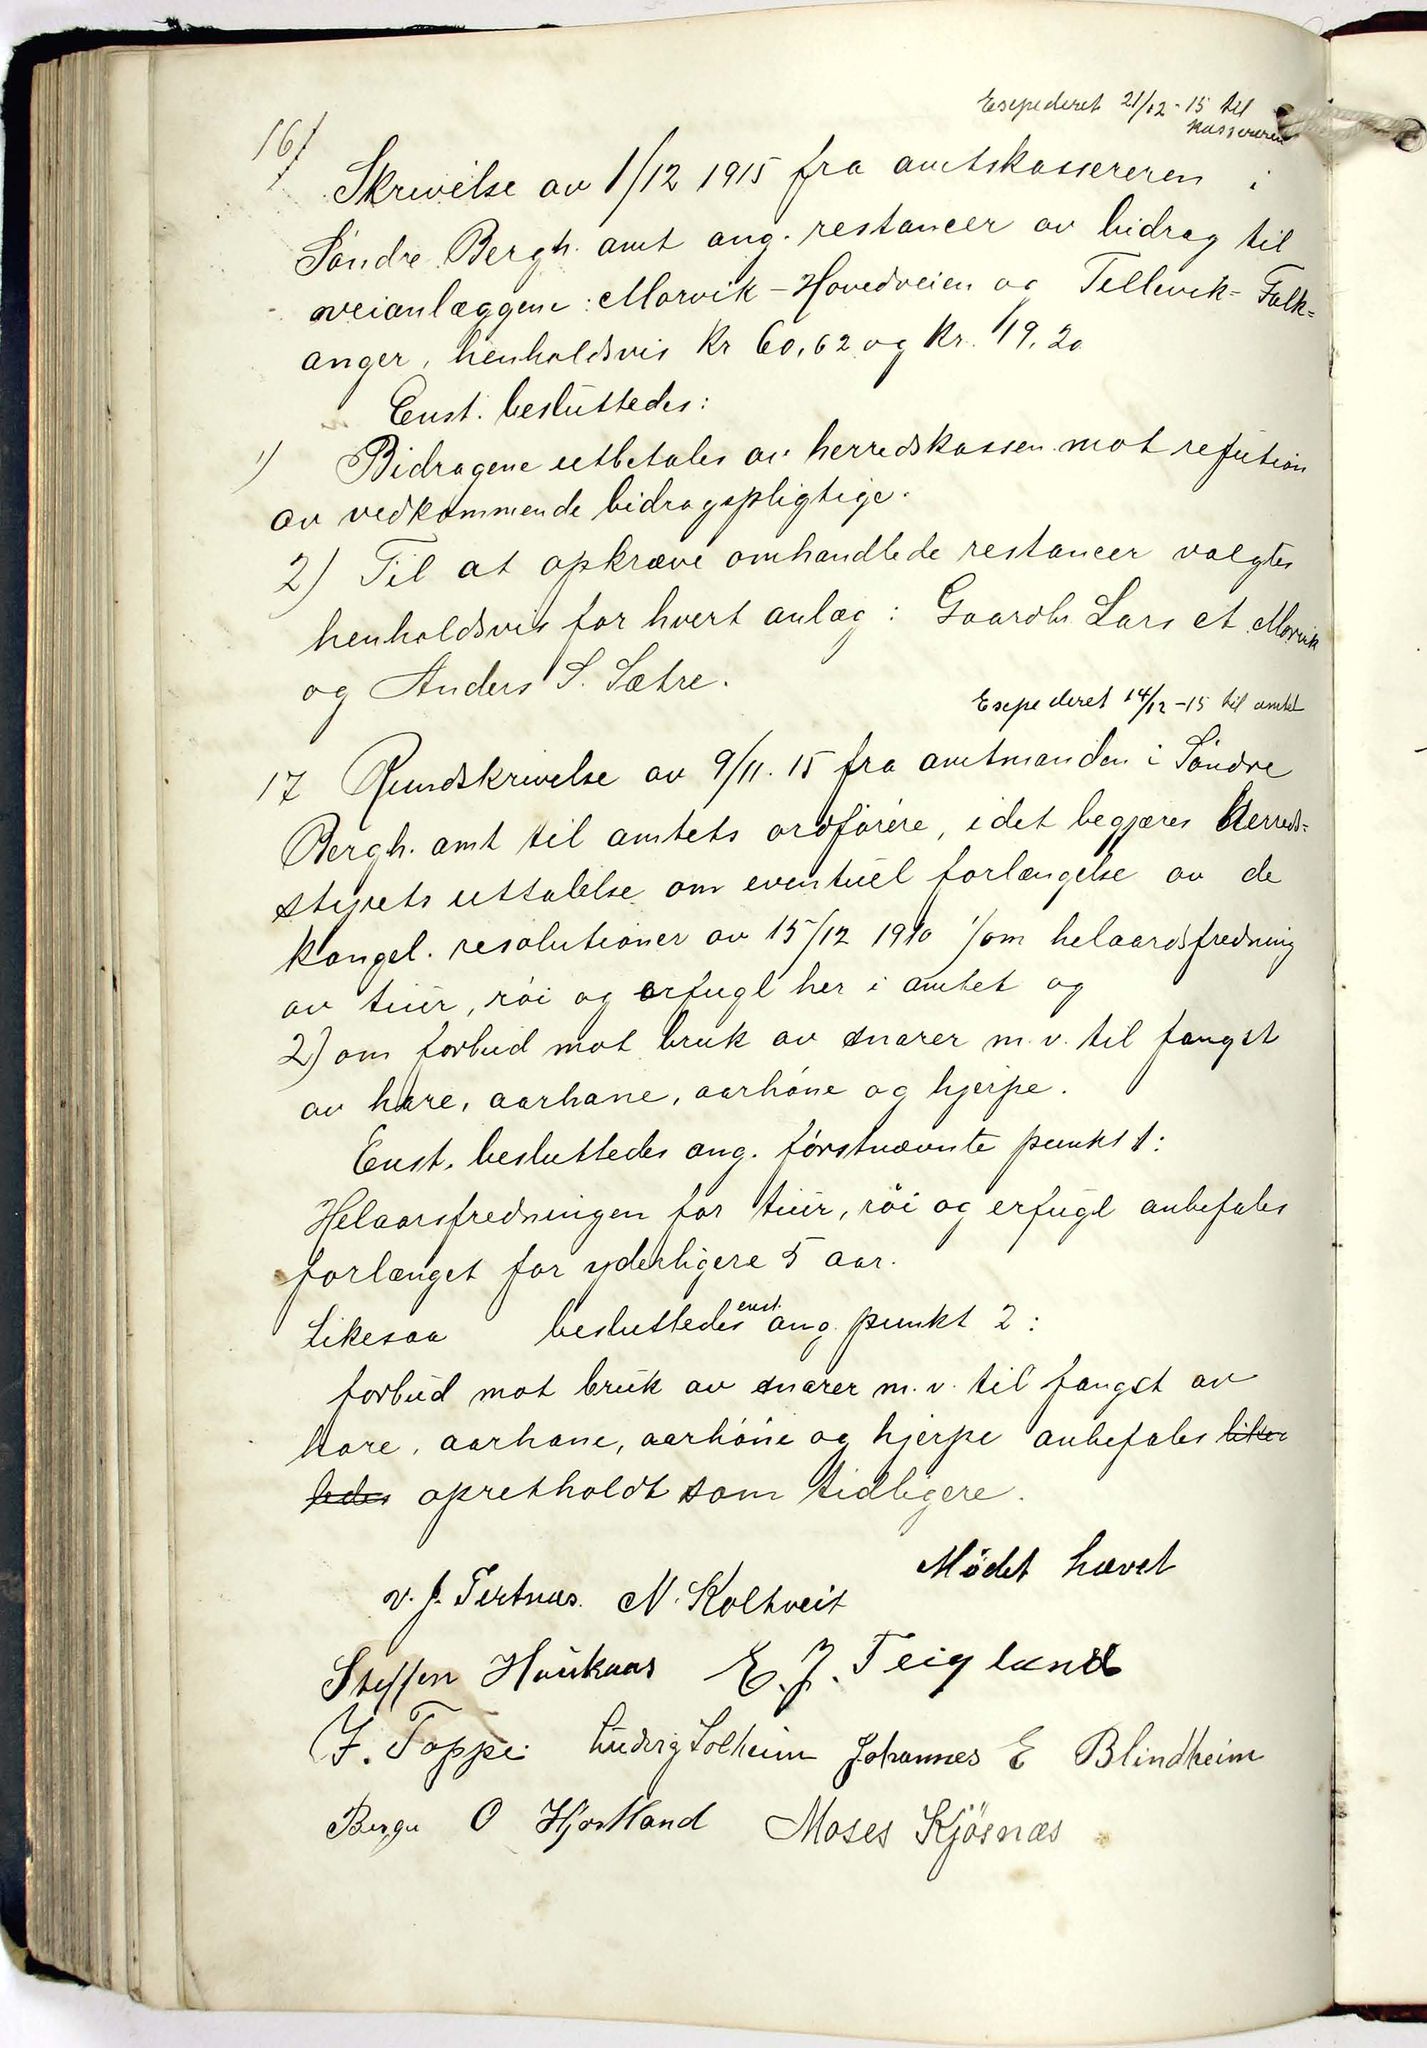 Expederet 21/12-15 til
kassereren
16/
Skrivelse av 1/12 1915 fra amtskassereren i
Söndre Bergh. amt ang. restancer av bidrag til
veianlæggene: Morvik-Hovedveien og Tellevik-Falk=
anger, henholdsvis Kr 60,62 og Kr. 19,20
Enst. besluttedes:
1) Bidragene utbetales av herredskassen mot refution
av vedkommende bidragspligtige.
2) Til at opkræve omhandlede restancer valgtes
henholdsvis for hvert anlæg: Gaardbr Lars et Morvik
og Anders S. Sætre.
Expederet 14/12-15 til amtet
17 Rundskrivelse av 9/11. 15 fra amtmanden i Söndre
Bergh. amt til amtets ordförere, idet begjæres Herreds=
styrets uttalelse om eventuel forlængelse av de
kongel. resolutioner av 15/12 1910 1/om helaarsfredning
av tiur, röi og ærfugl her i amtet og
2) om forbud mot bruk av snarer m.v. til fangst
av hare, aarhane, aarhöne og hjerpe.
Enst. besluttedes ang. förstnævnte punkt 1:
Helaarsfredningen for tiur, röi og erfugl anbefales
forlænget for yderligere 5 aar.
Likesaa besluttedes enst. ang. punkt 2:
forbud mot bruk av snarer m.v. til fangst av
hare, aarhane, aarhöne og hjerpe anbefales likes
ledes opretholdt som tidligere.
Mödet hævet
v. J. Tertnæs. N. Koltveit
Steffen Haukaas E. J. Teigland
J. Toppe Ludvig Solheim Johannes E Blindheim
Berge O Hjortland Moses Kjösnæs